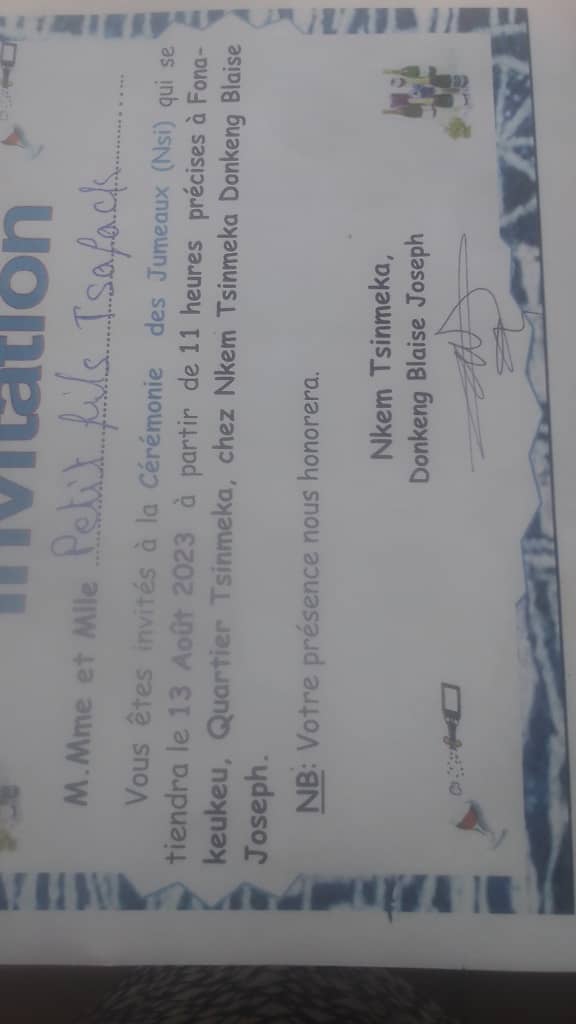 Invitation
M.Mme et Mlle Petit fils Tsafack
Vous êtes invités à la Cérémonie des Jumeaux (Nsi) qui se
tiendra le 13 Août 2023 à partir de 11 heures précises à Fona-
keukeu, Quartier Tsinmeka, chez Nkem Tsinmeka Donkeng Blaise
Joseph.
NB: Votre présence nous honorera.
Nkem Tsinmeka,
Donkeng Blaise Joseph